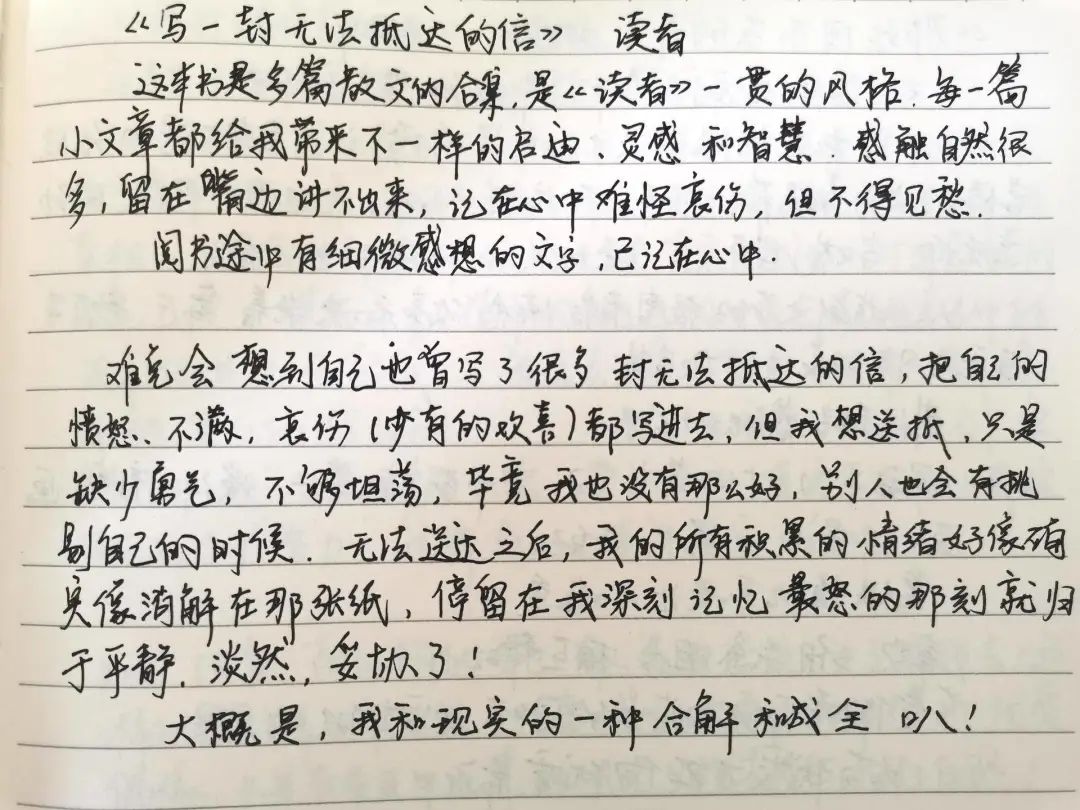 《写一封无法抵达的信》 读者
这本书是多篇散文的合集,是《读者》一贯的风格.每一篇
小文章都给我带来不一样的启迪、灵感和智慧.感触自然很
多,留在嘴边讲不出来,记在心中难怪哀伤,但不得见愁.
阅书途中有细微感想的文字,已记在心中.
难免会想到自己也曾写了很多封无法抵达的信,把自己的
愤怒、不满,哀伤(少有的欢喜)都写进去,但我想送抵,只是
缺少勇气,不够坦荡,毕竟我也没有那么好,别人也会有挑
剔自己的时候.无法送达之后,我的所有积累的情绪好像确
实像消解在那张纸,停留在我深刻记忆最怒的那刻就归
于平静,淡然,妥协了!
大概是,我和现实的一种合解和成全叭!